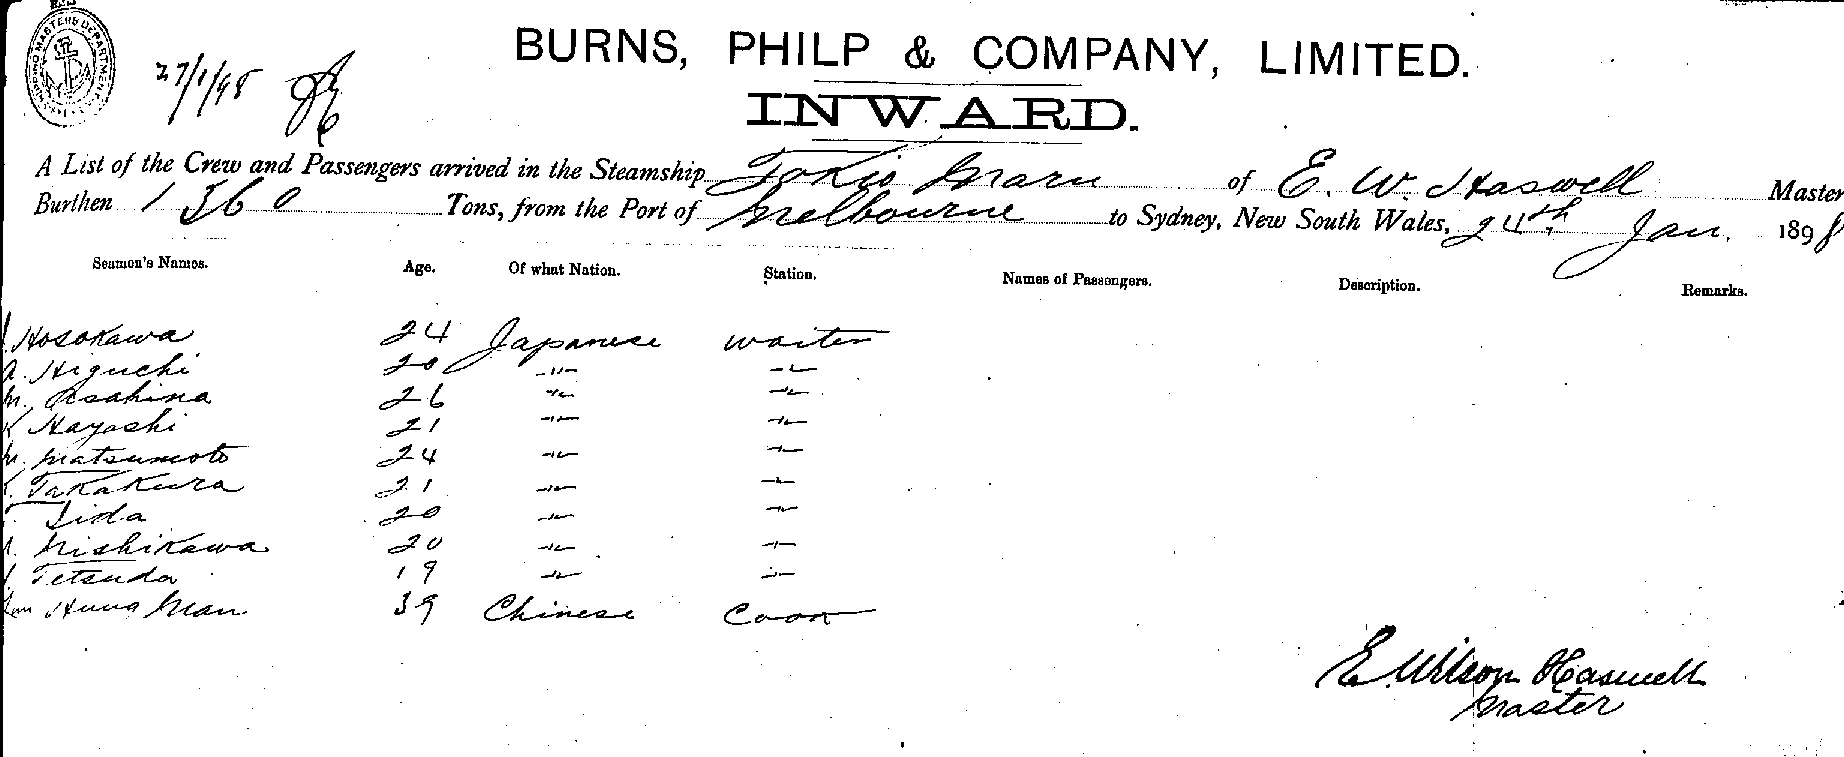 SHIPPING MASTERS DEPARTMENT
27/1/98
BURNS, PHILP & COMPANY, LIMITED.
INWARD.
A List of the Crew and Passengers arrived in the Steamship Tokio Maru of E. W. Haswell Master
Burthen 1360 Tons, from the Port of Melbourne to Sydney, New South Wales, 24th Jan. 1898
Seamen's Names. Age. Of what Nation. Station. Names of Passengers. Description. Remarks.
Hosokawa 24 Japanese waiter
A. Higuchi 20 -"- -"-
M. Asahina 26 -"- -"-
K Hayashi 21 -"- -"-
M. Matsumoto 24 -"- -"-
Takakura 21 -"- -"-
Iida 20 -"- -"-
Nishikawa 20 -"- -"-
Tetsuda 19 -"- -"-
Hung Man 39 Chinese Cook
E. Wilson Haswell
Master